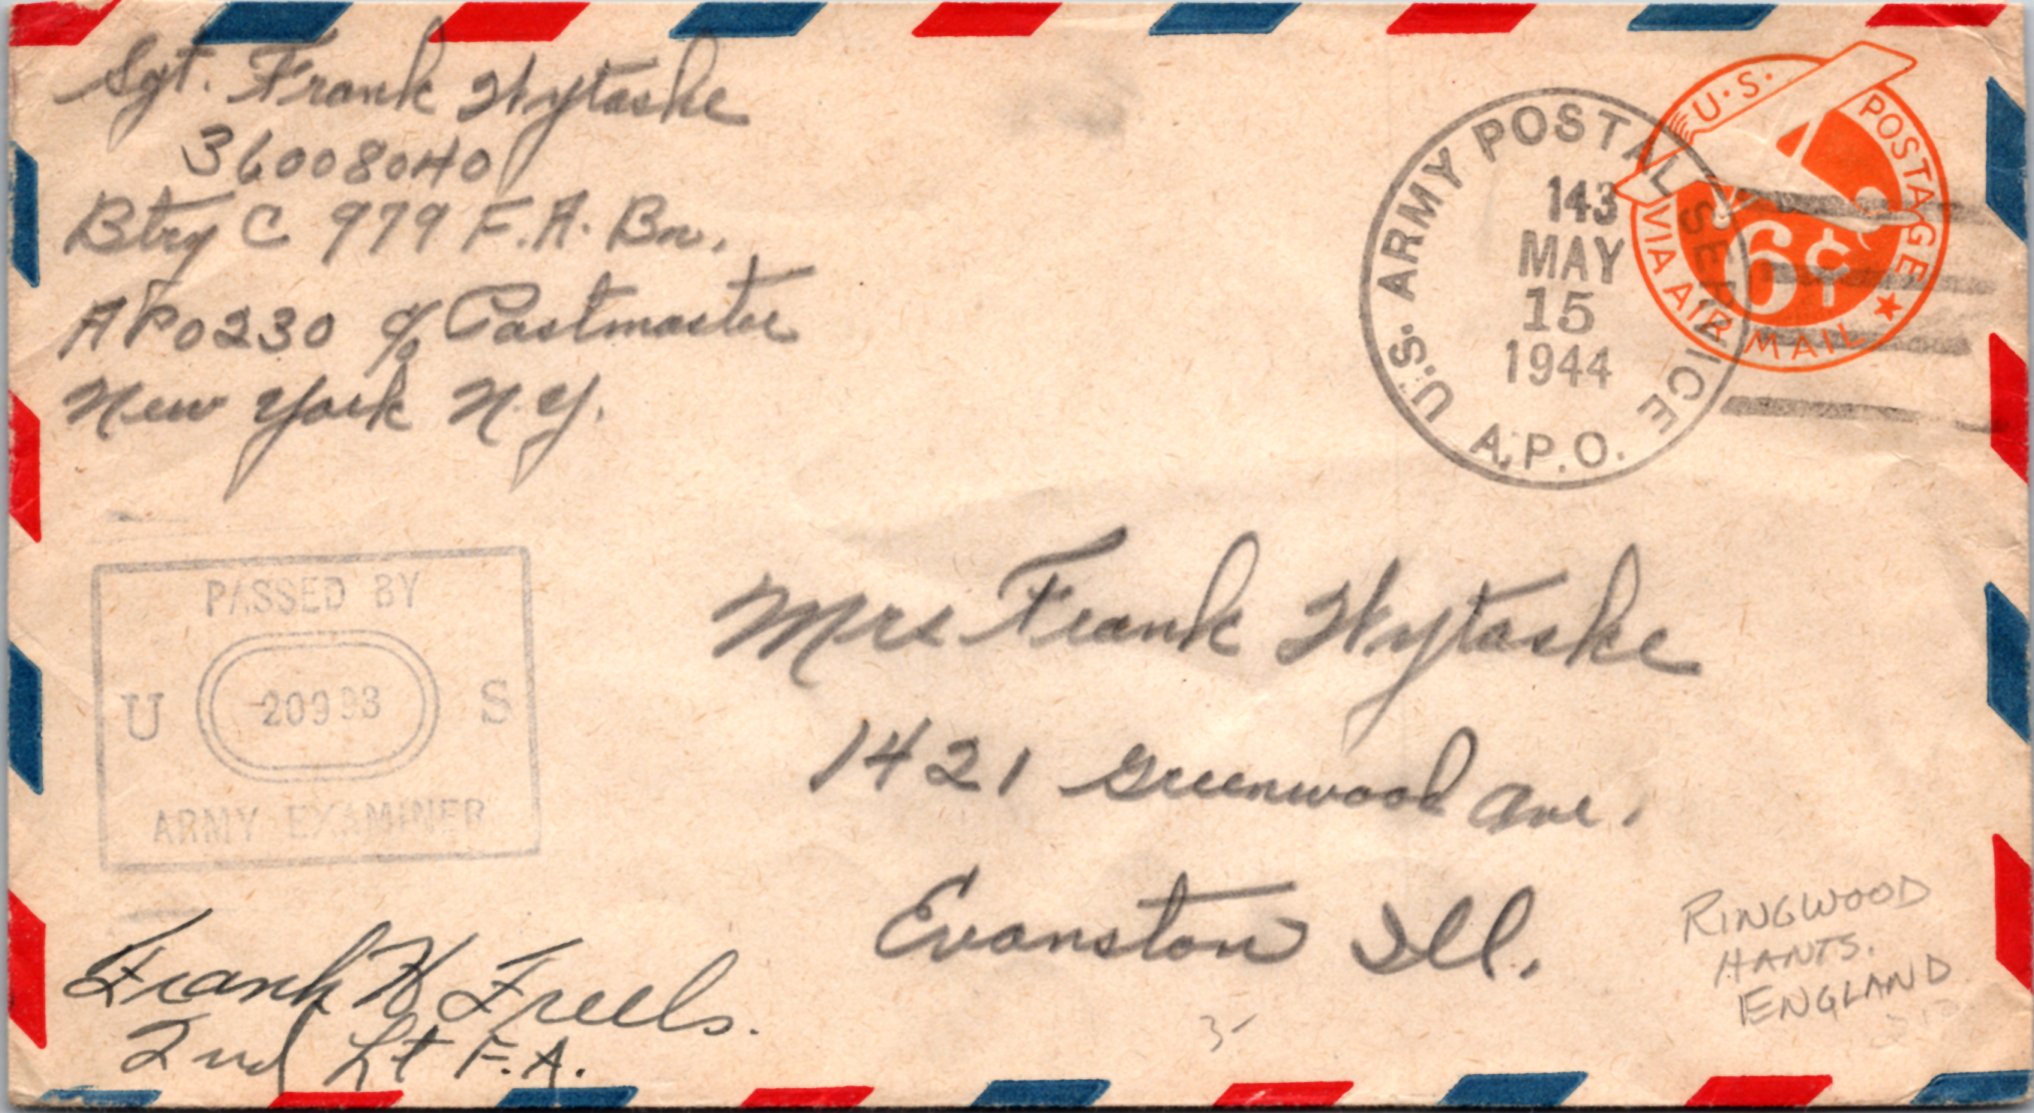 Sgt. Frank Wytaske
36008040
Btry C 979 F.A. Bn.
APO 230 c/o Postmaster
New York N.Y.
U.S. ARMY POSTAL SERVICE
143
MAY
15
1944
A.P.O.
U.S. POSTAGE
6¢
VIA AIR MAIL
PASSED BY
U 20993 S
ARMY EXAMINER
Mrs Frank Wytaske
1421 Greenwood Ave.
Evanston Ill.
Frank W Freels.
2nd Lt F.A.
RINGWOOD
HANTS.
ENGLAND
3-